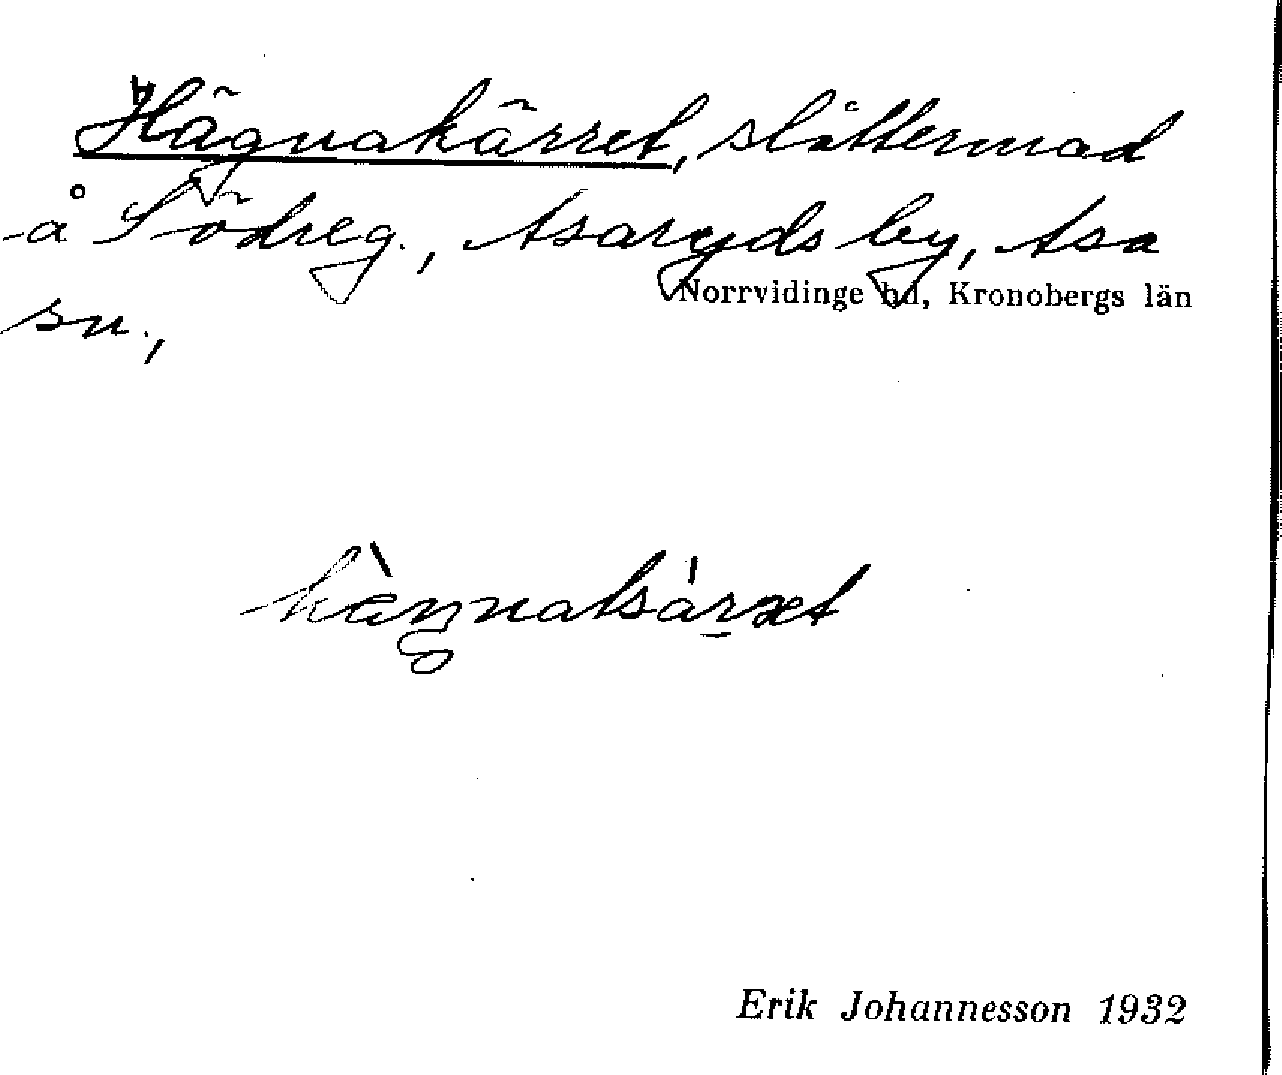 Hägnakärret, slåttermad
å Södreg., Asaryds by, Asa
Norrvidinge hd, Kronobergs län
sn.,
Erik Johannesson 1932